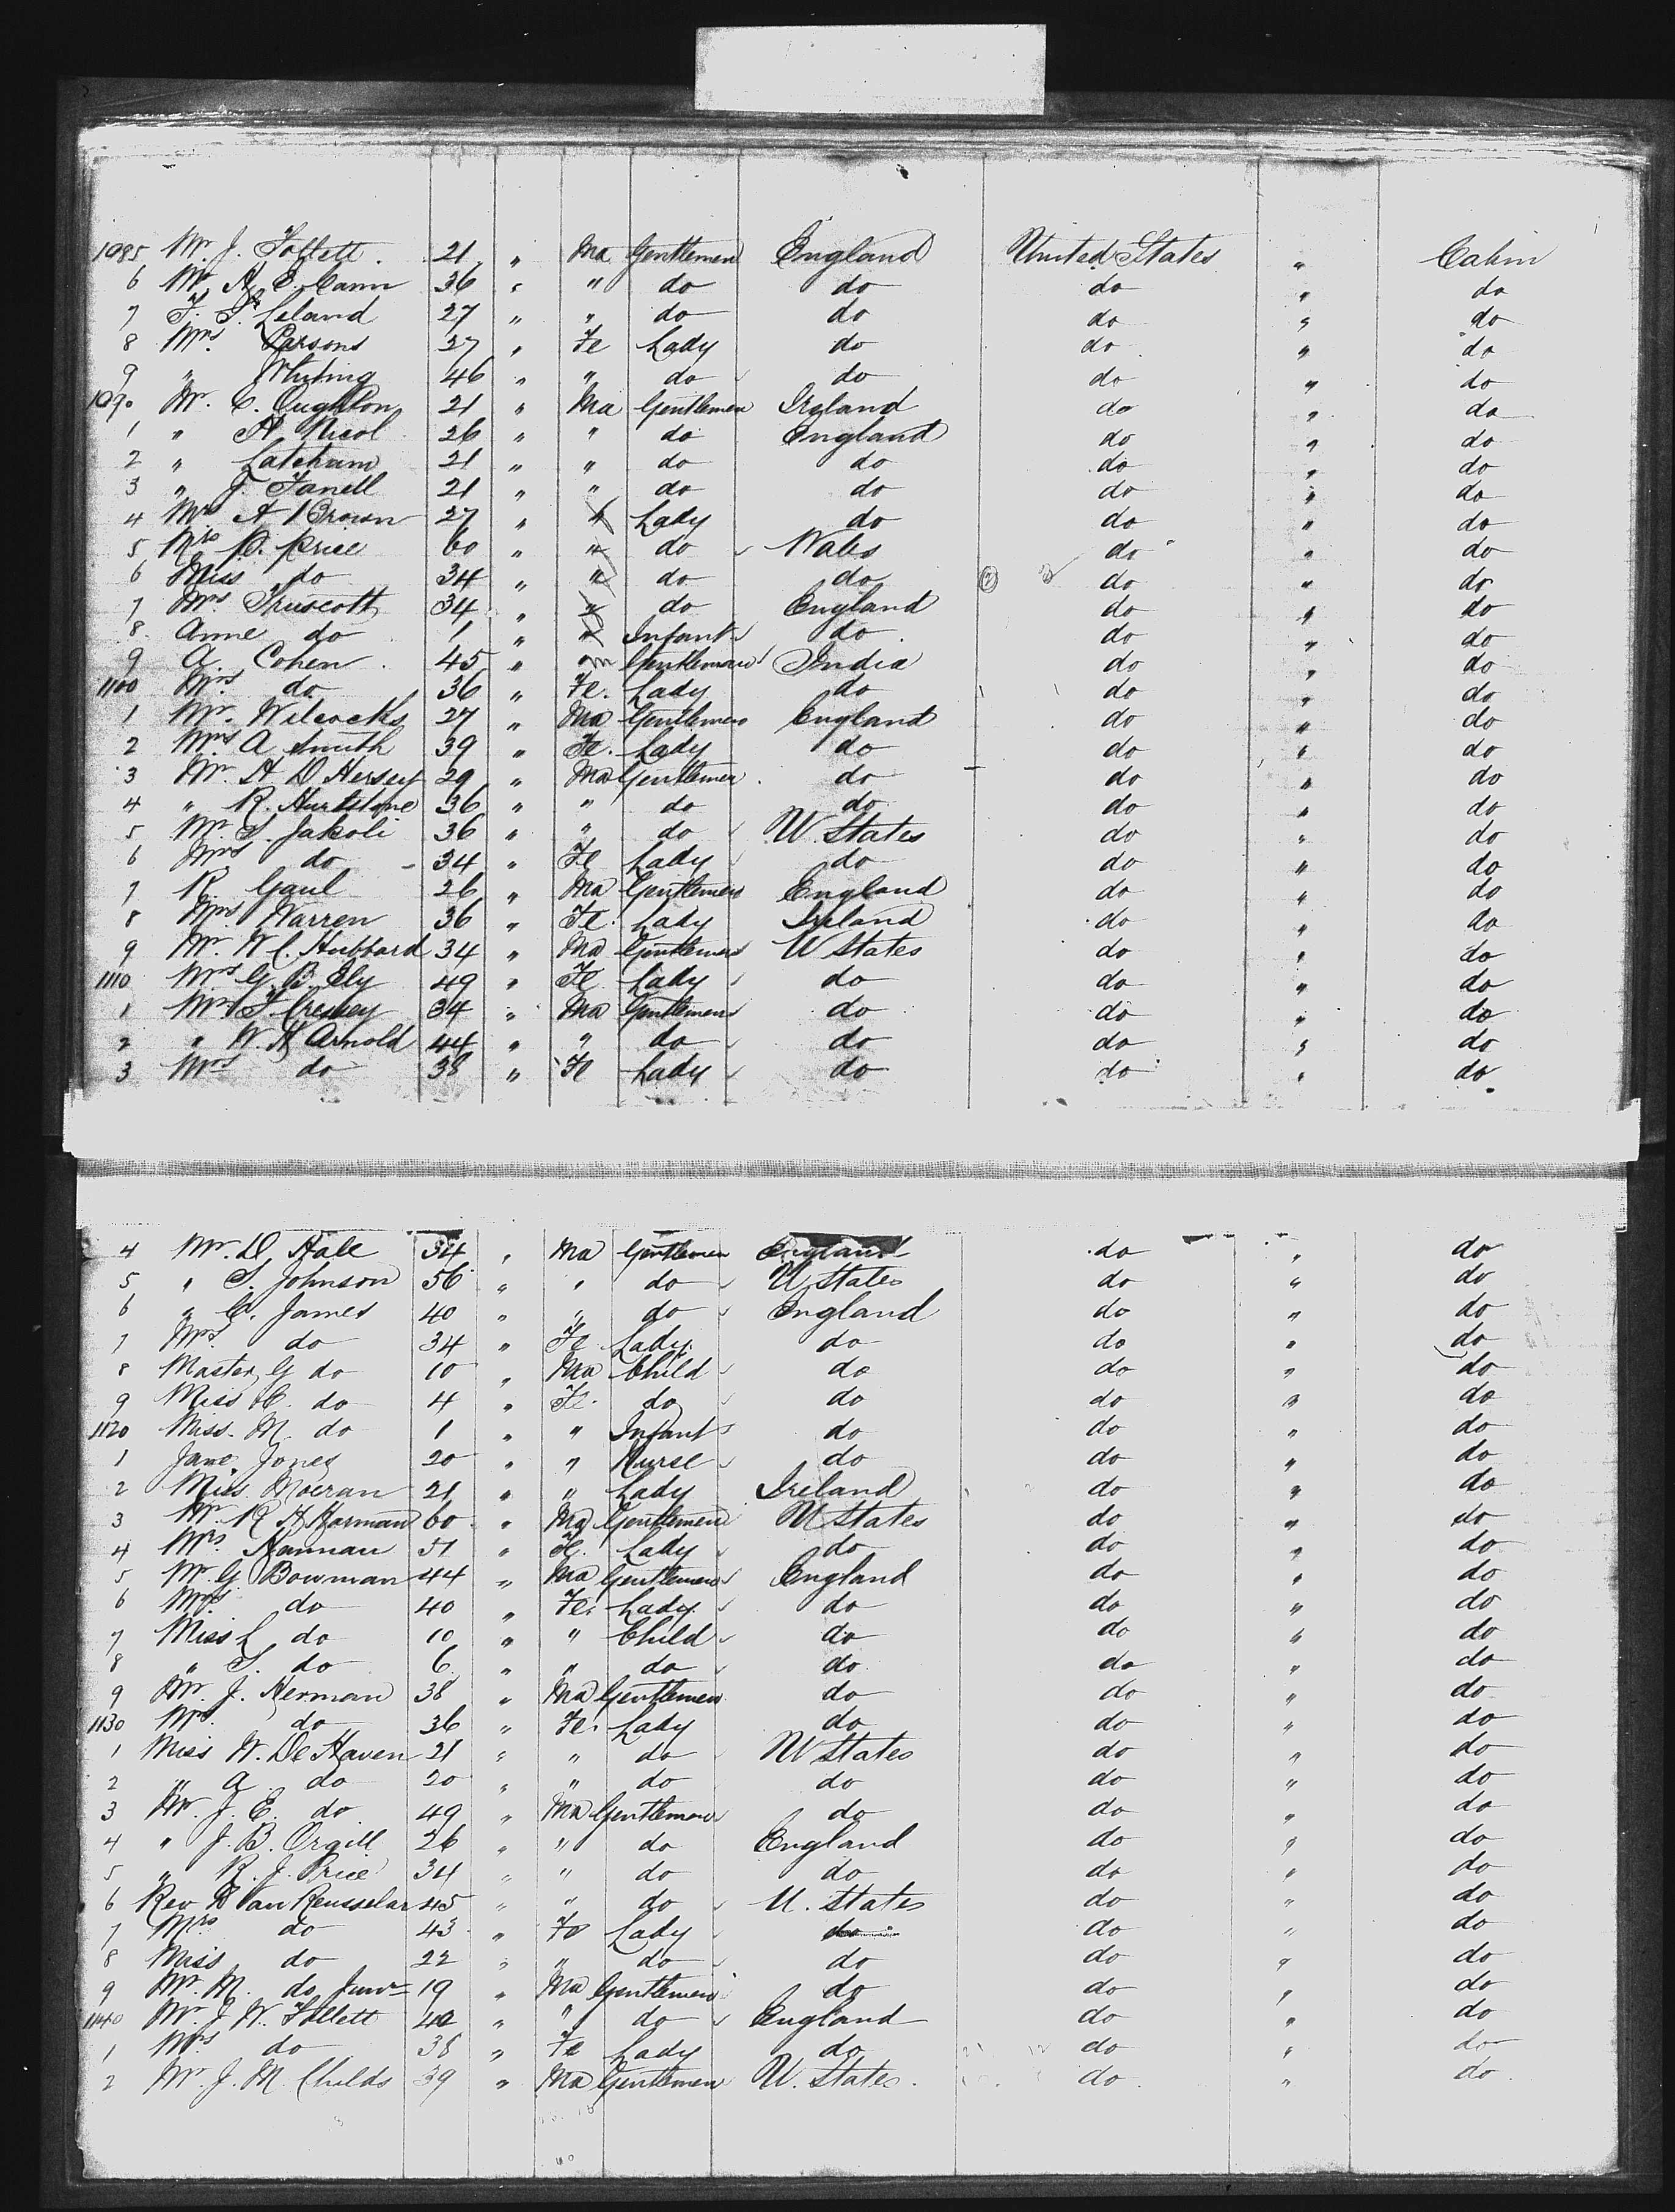 1085 Mr. J. Follett. 21 " Ma Gentlemen England United States " Cabin
6 Mr. H. C. Cann 36 " " do do do " do
7 F. S. Leland 27 " " do do do " do
8 Mrs. Parsons 27 " Fe Lady do do " do
9 " Whiting 46 " " do do do " do
1090 Mr. C. Oughton 21 " Ma Gentlemen Ireland do " do
1 " A Nicol 26 " " do England do " do
2 " Latcham 21 " " do do do " do
3 " J. 21 " " do do do " do
4 Mrs A Brown 27 " " Lady do do " do
5 Mrs P. Price 60 " " do Wales do " do
6 Miss do 34 " " do do do " do
7 Mrs Truscott 34 " " do England do " do
8. Anne do 1 " " Infant do do " do
9 A. Cohen 45 " m Gentleman India do " do
1100 Mrs do 36 " Fe. Lady do do " do
1 Mr. Wilcocks 27 " Ma Gentlemen England do " do
2 Mrs A Smith 39 " Fe. Lady do do " do
3 Mr. H D Hersey 29 " Ma Gentlemen do do " do
4 " R. Hurtstone 36 " " do do do " do
5 Mr. S. Jakoli 36 " " do U States do " do
6 Mrs do 34 " Fe Lady do do " do
7 R. Gaul 26 " Ma Gentlemen England do " do
8 Mrs Warren 36 " Fe. Lady Ireland do " do
9 Mr. W C. Hubbard 34 " Ma Gentlemen U States do " do
1110 Mrs G. B. Ely 49 " Fe Lady do do " do
1 Mr T 34 " Ma Gentlemen do do " do
2 " W. H Arnold 44 " " do do do " do
3 Mrs do 38 " Fe Lady do do " do
4 Mr. D. Hale 34 " Ma Gentlemen England do " do
5 " S. Johnson 56 " " do U States do " do
6 " C. James 40 " " do England do " do
7 Mrs. do 34 " Fe Lady do do " do
8 Master G do 10 " Ma Child do do " do
9 Miss C. do 4 " Fe. do do do " do
1120 Miss. M. do 1 " " Infant do do " do
1 Jane Jones 20 " " Nurse do do " do
2 Miss Moeran 21 " " Lady Ireland do " do
3 Mr. R H Harman 60 " Ma Gentlemen U States do " do
4 Mrs Hannan 51 " Fe. Lady do do " do
5 Mr. G. Bowman 44 " Ma Gentlemen England do " do
6 Mrs. do 40 " Fe. Lady do do " do
7 Miss L do 10 " " Child do do " do
8 " S. do 6 " " do do do " do
9 Mr. J. Herman 38 " Ma Gentlemen do do " do
1130 Mrs. do 36 " Fe. Lady do do " do
1 Miss W. De Haven 21 " " do U States do " do
2 " A do 20 " " do do do " do
3 Mr. J. E. do 49 " Ma Gentlemen do do " do
4 " J. B. Orgill 26 " " do England do " do
5 " R. J. Price 34 " " do do do " do
6 Rev Van Rensselar 45 " " do U. States do " do
7 Mrs do 43 " Fe Lady do do " do
8 Miss do 22 " " do do do " do
9 Mr. M. do Junr 19 " Ma Gentlemen do do " do
1140 Mr. J W. Follett 40 " " do England do " do
1 Mrs do 38 " Fe Lady do do " do
2 Mr. J. M. Childs 39 " Ma Gentlemen U. States. do " do